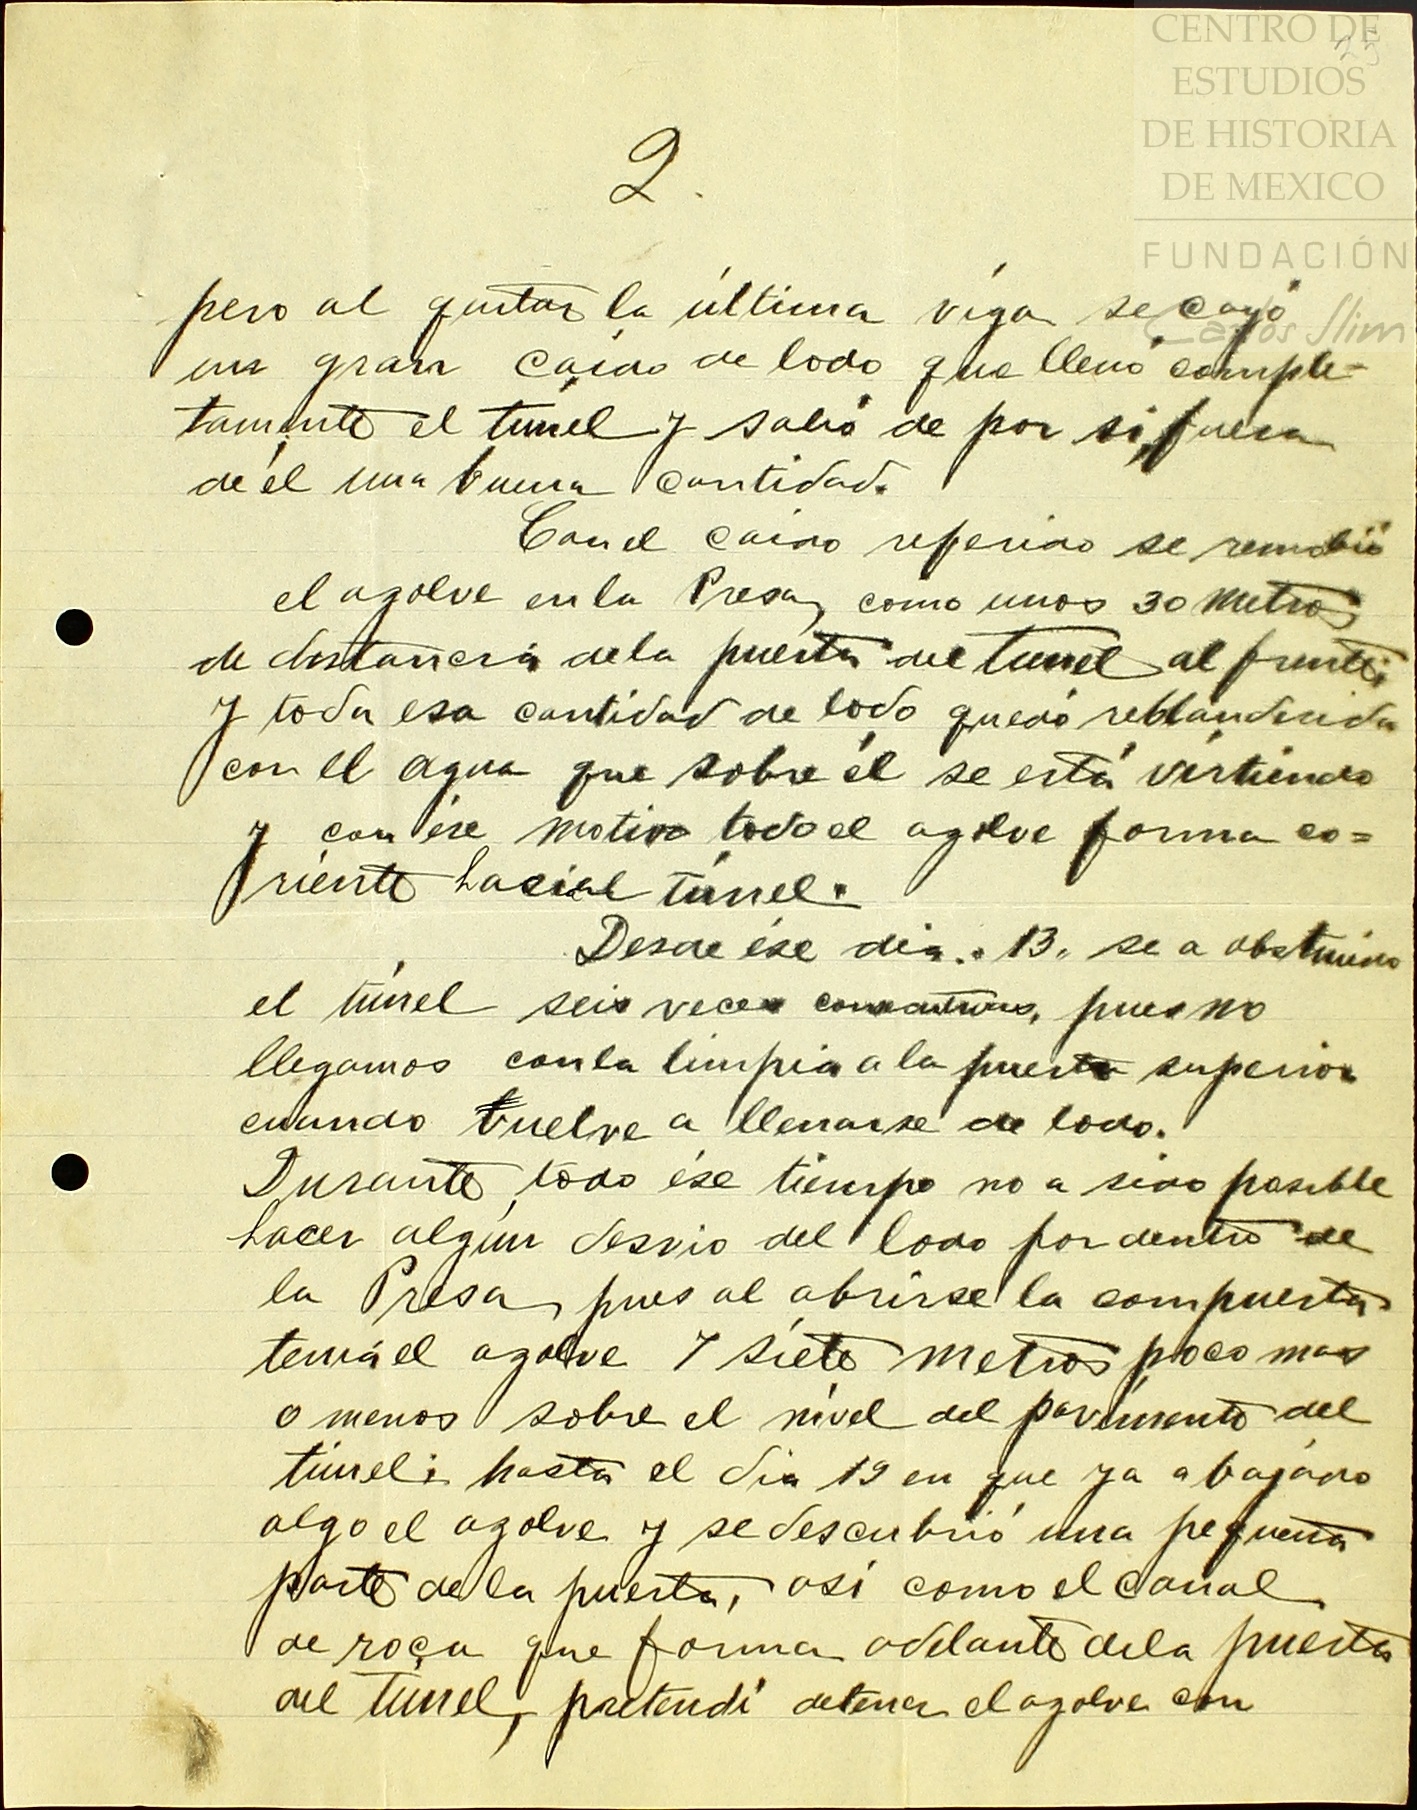 CENTRO DE
ESTUDIOS
DE HISTORIA
DE MEXICO
FUNDACIÓN
Carlos Slim
25
2.
pero al quitar la última víga se cayó
un gran caido de lodo que llenó comple-
tamente el túnel y salió de por sí, fuera
de él una buena cantidad.
Con el caido referido se removió
el azolve en la Presa, como unos 30 metros
de distancia de la puerta del túnel al frente;
y toda esa cantidad de lodo quedó reblandecida
con el agua que sobre él se está virtiendo
y con ése motivo todo el azolve forma co=
riente hacial túnel.
Desde ése dia.. 13. se a obstruido
el túnel seis veces consecutivas, pues no
llegamos con la limpia a la puerta superior
cuando vuelve a llenarse de lodo.
Durante todo ése tiempo no a sido posible
hacer algún desvio del lodo por dentro de
la Presa, pues al abrirse la compuerta
tenia el azolve 7 síete metros poco mas
o menos sobre el nível del pavimento del
túnel; hasta el dia 19 en que ya a bajádo
algo el azolve y se descubrió una pequeña
parte de la puerta, así como el canal
de roca que forma adelante dela puerta
del túnel, pretendí detener el azolve con